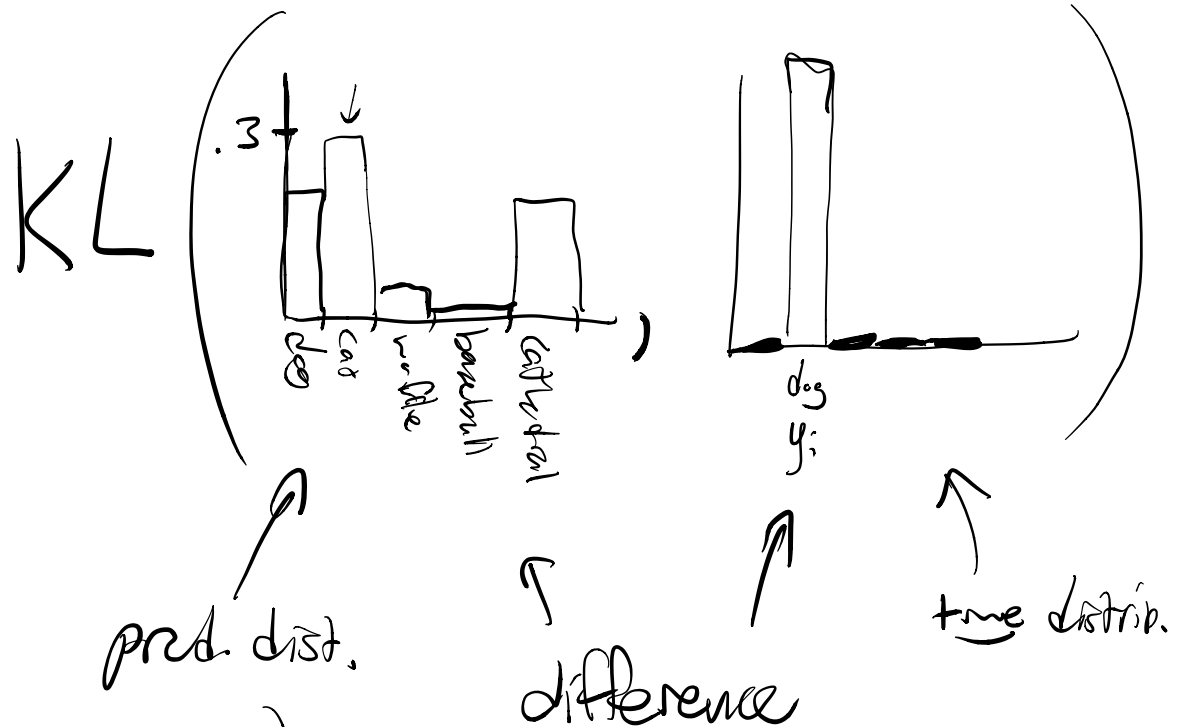 KL
.3
dog
cat
waffle
baseball
Cathedral
,
dog
yi
pred. dist.
difference
true distrib.